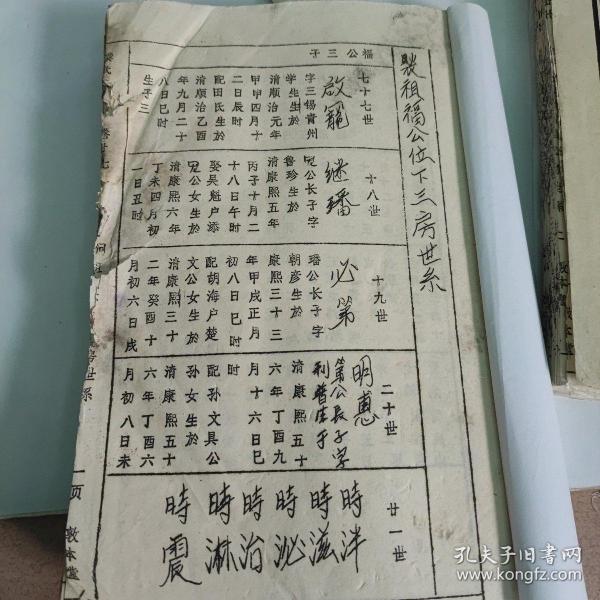 製祖福公位下三房世系
福公三子
七十七世
啟寵
字三錫貴州
学生生於
清順治元年
甲申四月十
二日辰时
配田氏生於
清順治乙酉
年九月二十
八日巳时
生子三
十八世
继璠
寵公长子字
鲁珍生於
清康熙五年
丙子十月二
十八日午时
娶吴魁户添
寵公女生於
清康熙六年
丁未四月初
一日丑时
十九世
必第
璠公长子字
朝彦生於
康熙三十三
年甲戌正月
初八日巳时
配胡海户楚
文公女生於
清康熙三十
二年癸酉十
月初六日戌
时
二十世
明惠
第公長子字
利普生于
清康熙五十
六年丁酉九
月十六日巳
时
配孙文具公
孙女生於
清康熙五十
六年丁酉六
月初八日未
廿一世
時泮
時滋
時泌
時治
時淋
時震
世系
一页
敦本堂
孔夫子旧书网
www.kongfz.com